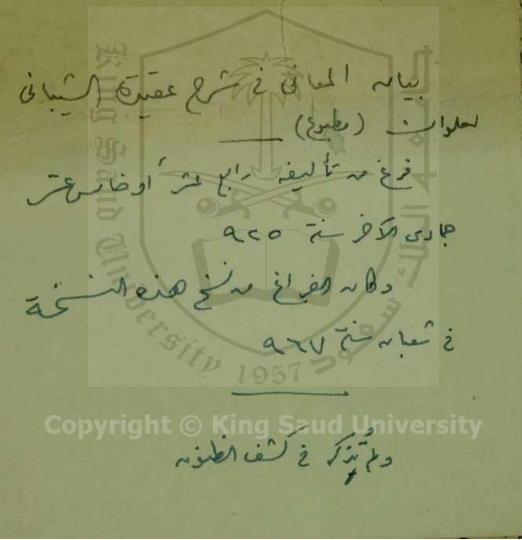 بيان المعاني في شرح عقيدة الشيباني
لعلوان (مطبوع)
فرغ من تأليفه رابع عشر أو خامس عشر
جمادى الآخر سنة ٩٢٥
وكان الفراغ من نسخ هذه النسخة
في شعبان سنة ٩٦٧
ولم يُذكر في كشف الظنون
King Saud University
1957
Copyright © King Saud University